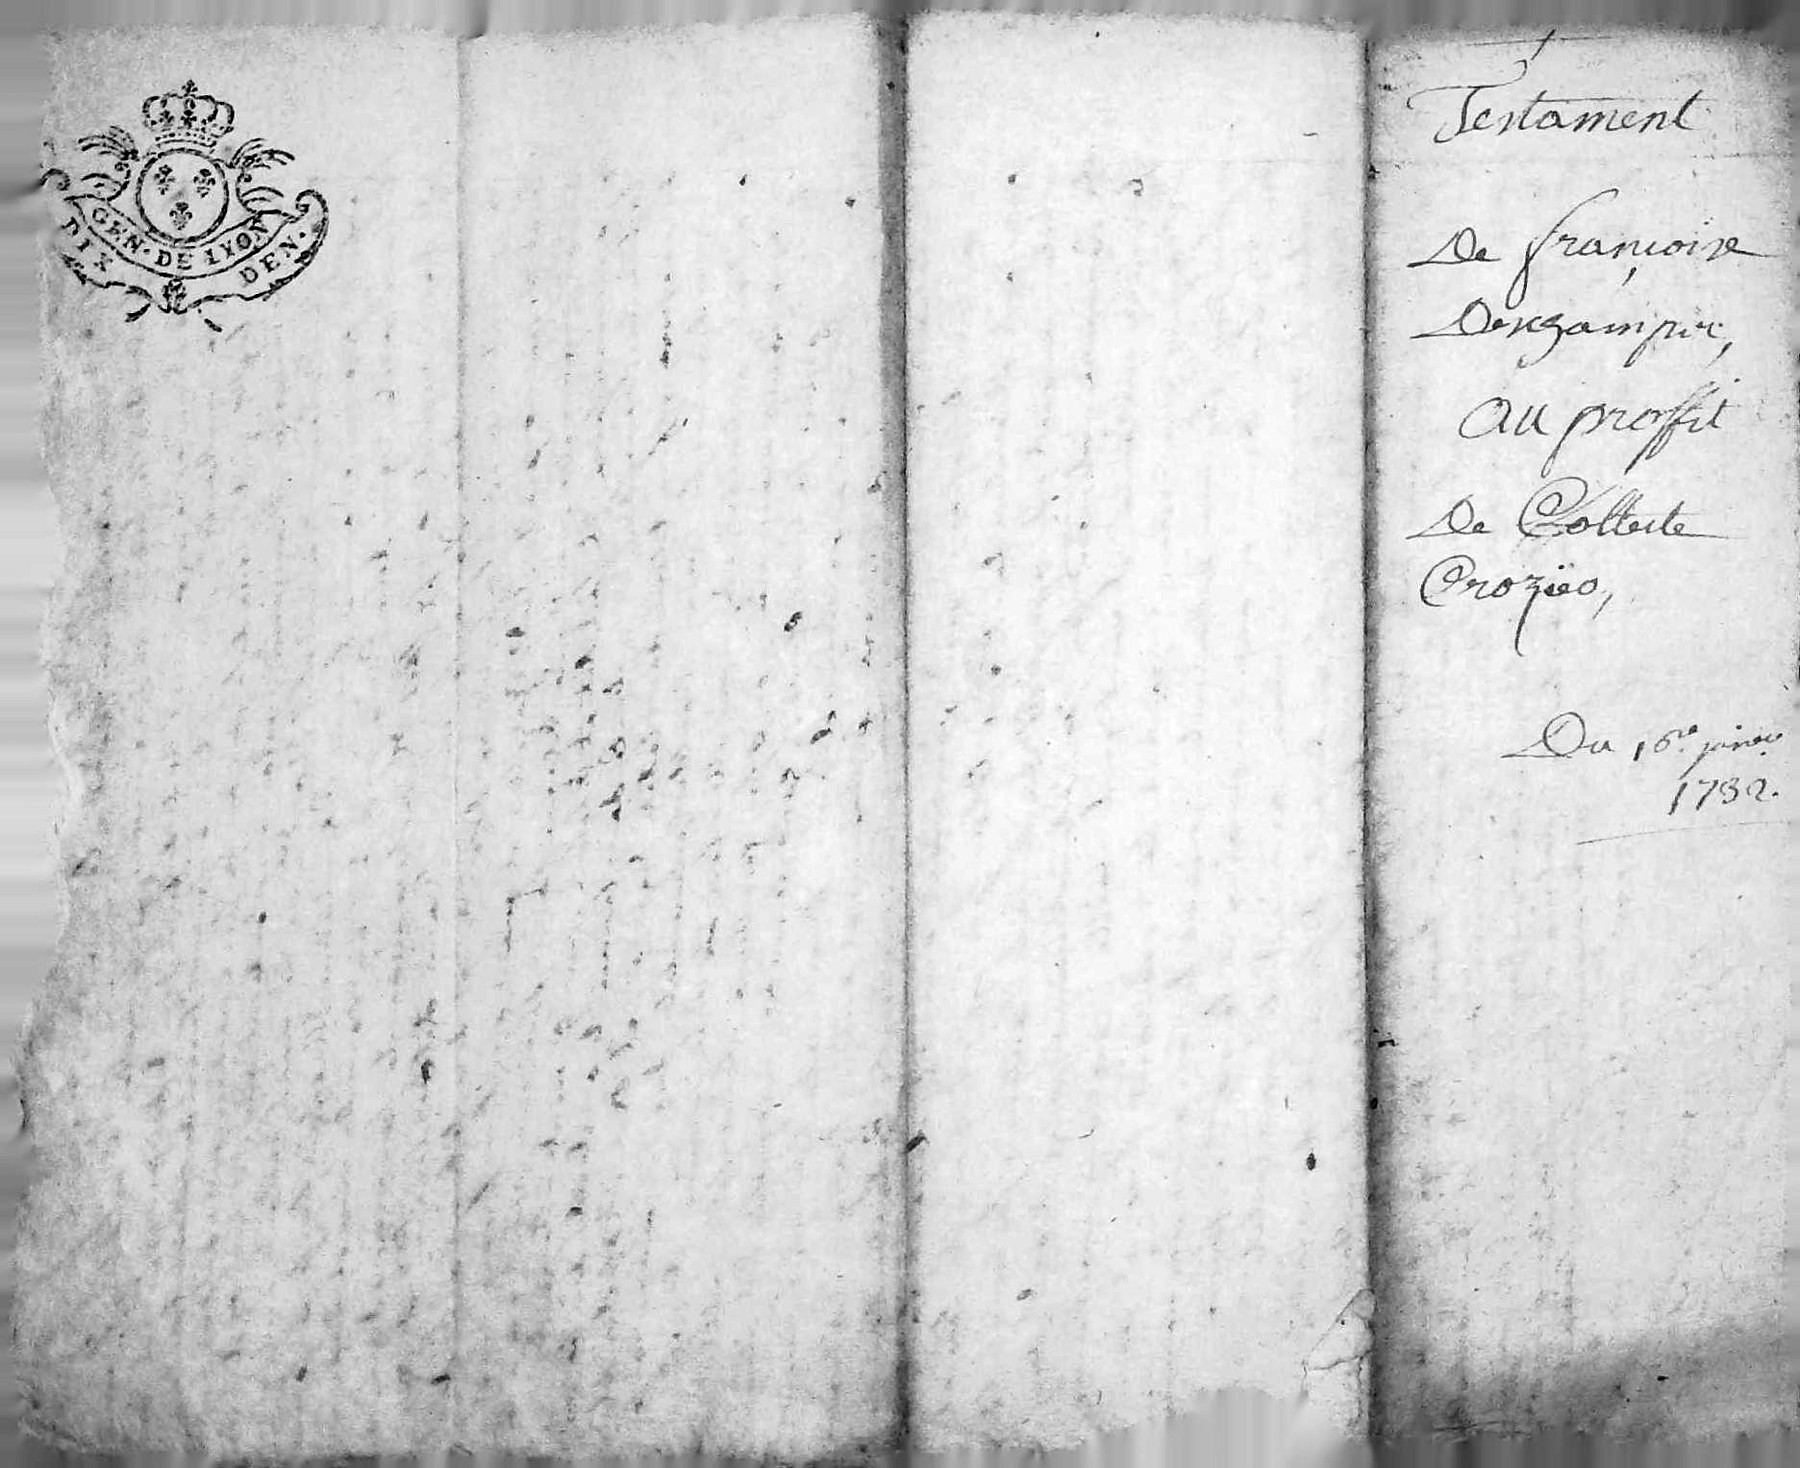 GEN. DE LYON
DIX DEN.
Testament
De françoise
Deschampt,
au proffit
De Collecte
Crozïeo,
Du 16e janv.
1782.